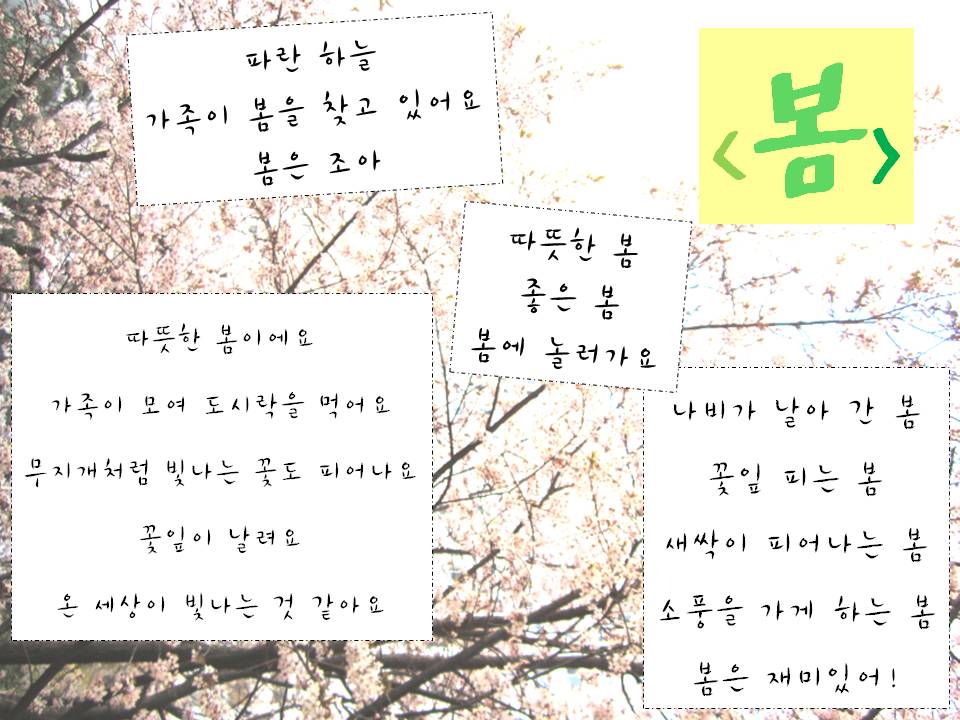 <봄>
파란 하늘
가족이 봄을 찾고 있어요
봄은 조아
따뜻한 봄
좋은 봄
봄에 놀러가요
따뜻한 봄이에요
가족이 모여 도시락을 먹어요
무지개처럼 빛나는 꽃도 피어나요
꽃잎이 날려요
온 세상이 빛나는 것 같아요
나비가 날아 간 봄
꽃잎 피는 봄
새싹이 피어나는 봄
소풍을 가게 하는 봄
봄은 재미있어!